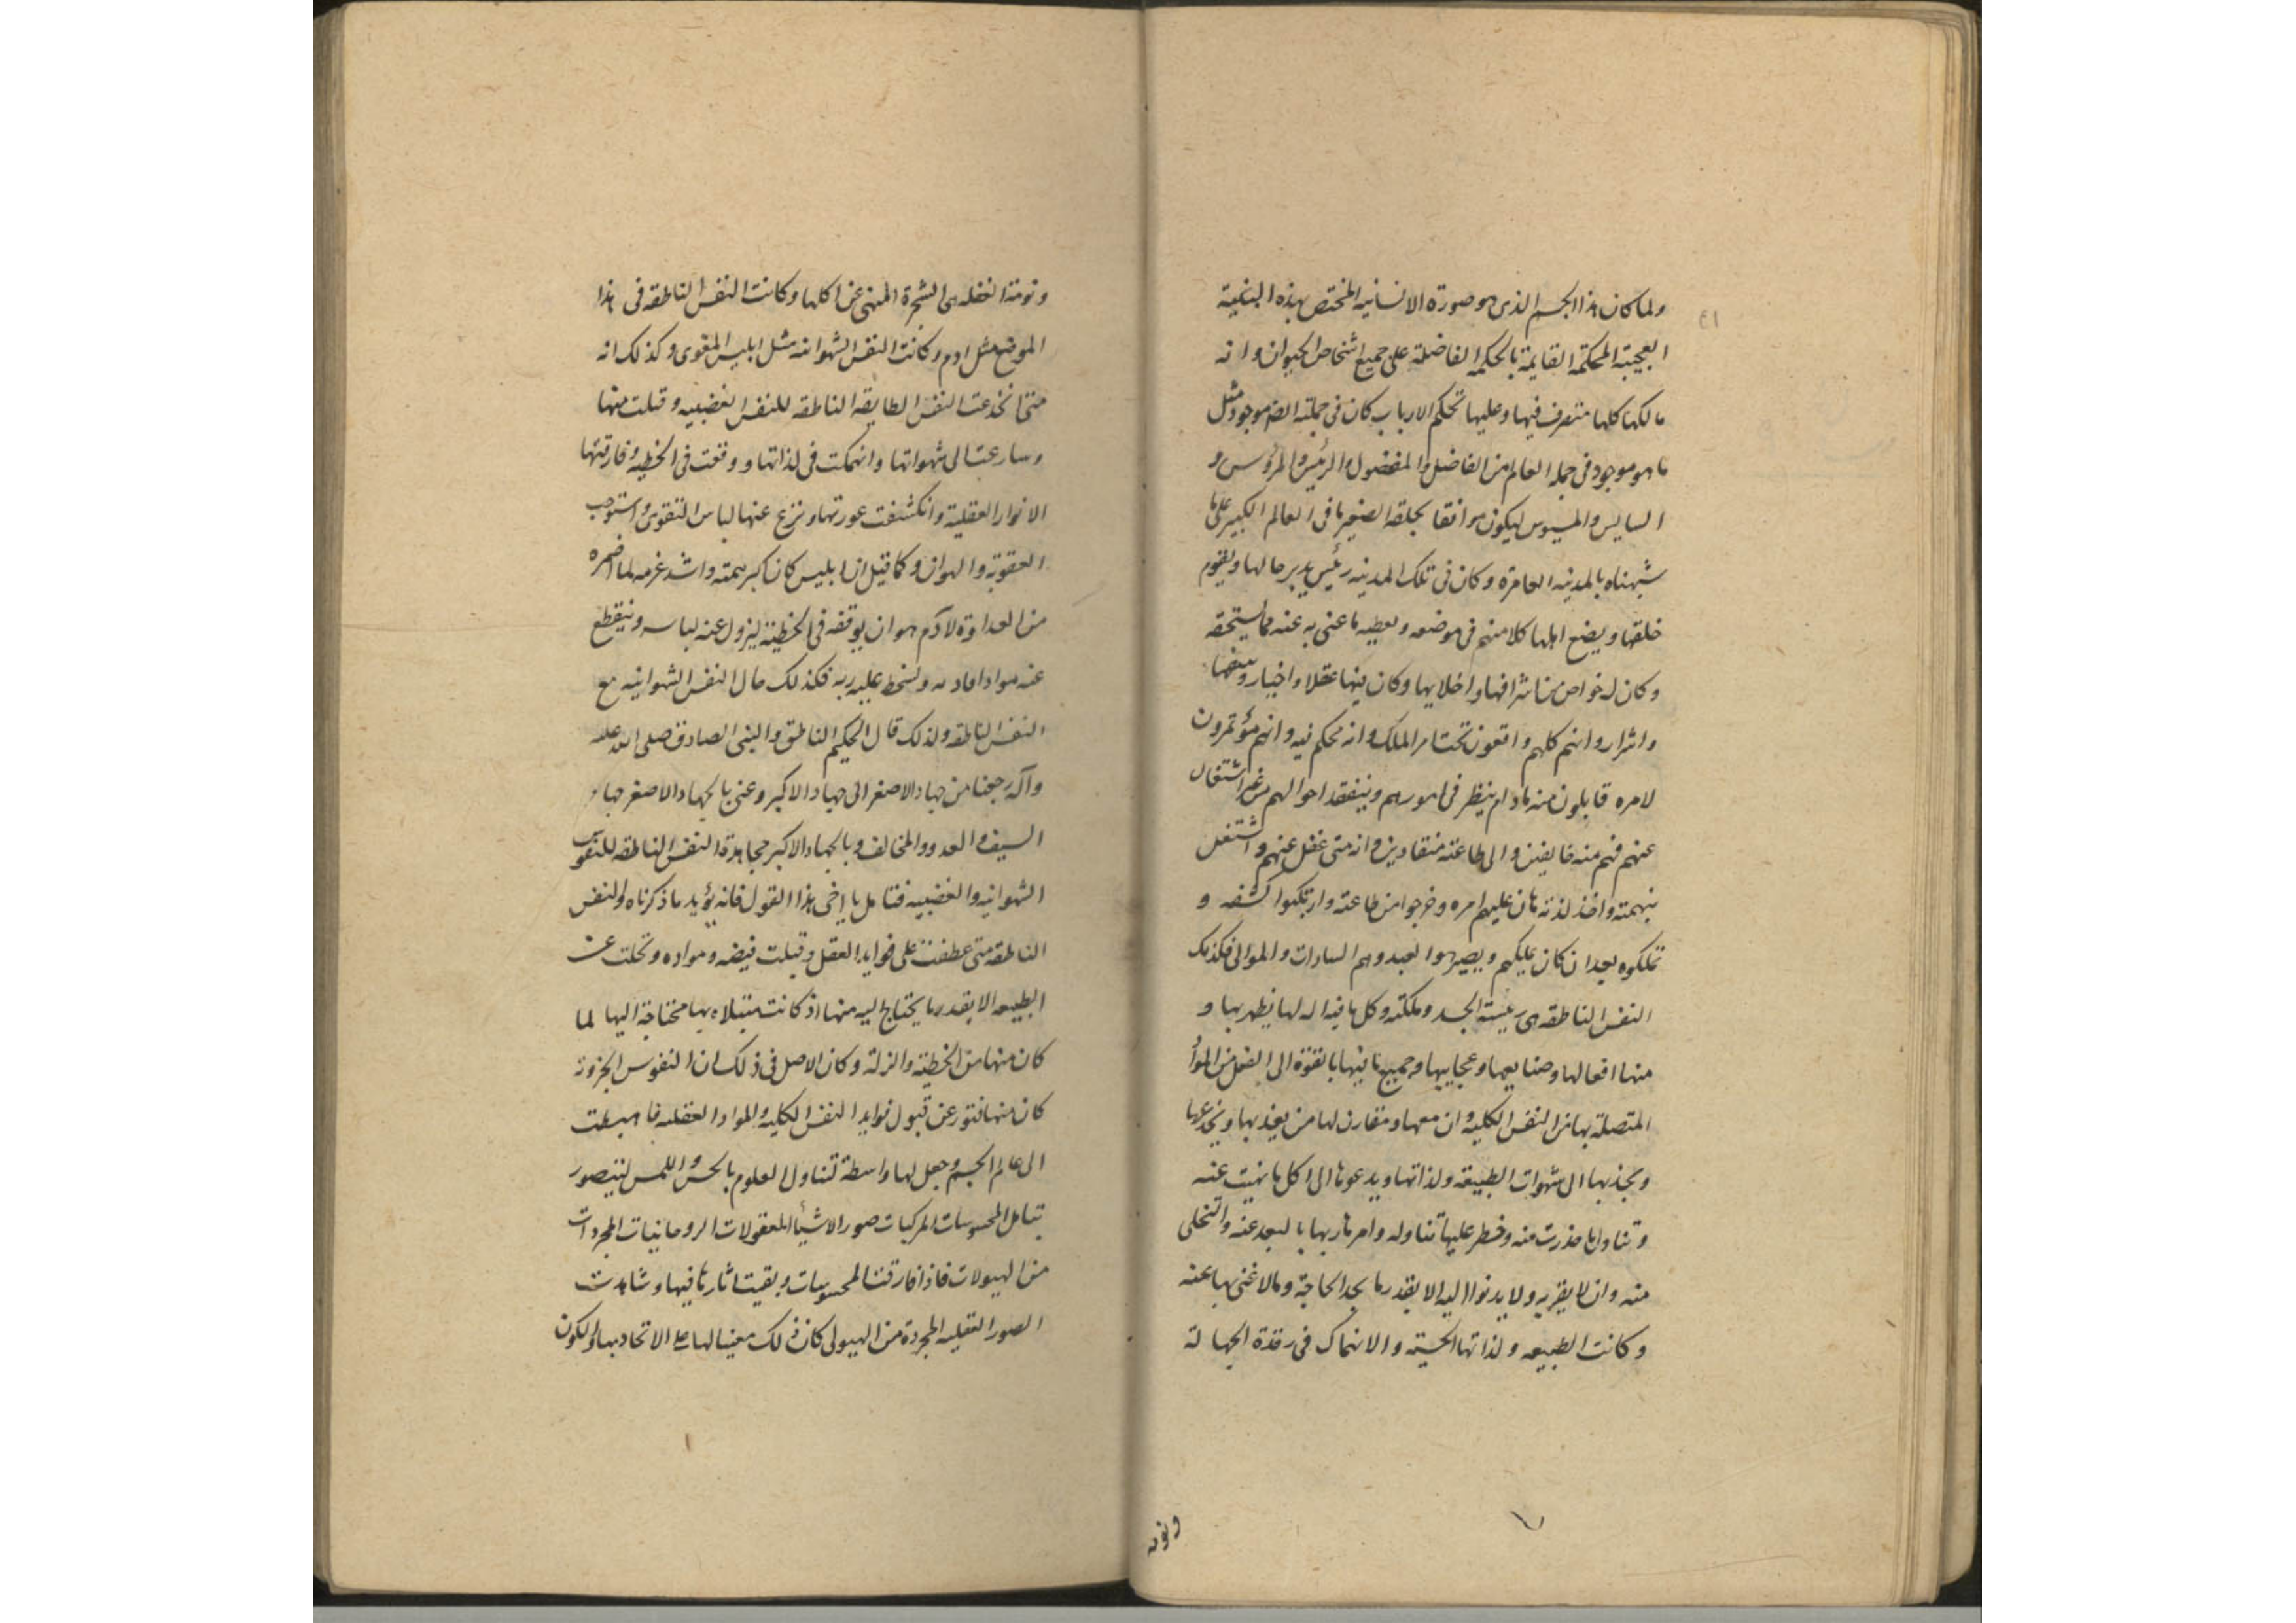 ٤١
ولما كان هذا الجسم الذى هو صورة الانسانيه المختص بهذه البنية
العجيبة المحكمة القايمة بالحكمه الفاضلة على جميع اشخاص الحيوان وانه
مالكها كلها متصرف فيها وعليها تحكم الارباب كان فى جملته ايضا موجود مثل
ما هو موجود فى جمله العالم من الفاضل والمفضول والرئيس والمرؤس و
السايس والمسيوس ليكون موافقا بخلقه الصغير ما فى العالم الكبير على ما
شبهناه بالمدينه العامرة وكان فى تلك المدينه رئيس يدبر حالها ويقوم
خلقها ويضع اهلها كلا منهم فى موضعه ويعطيه ما عنى به عنه مما يستحقه
وكان له خواص من اشرافها واخلايها وكان فيها عقلا واخيار وبينهما
واشرار وانهم كلهم واقعون تحت امر الملك وانه محكم فيه وانهم مؤتمرون
لامره قابلون منه مادام ينظر فى امورهم ويتفقد احوالهم من غير اشتغال
عنهم فهم منه خايفين والى طاعته منقادين وانه متى غفل عنهم واشتغل
بنهمته واخذ لذته هان عليهم امره وخرجوا من طاعته وارتكبوا السفه و
تملكوه بعد ان كان يملكهم ويصير هو العبد وهم السادات والموالى فكذلك
النفس الناطقه هى رئيسة الجسد وملكته وكل ما فيه اله لها يظهر بها و
منها افعالها وصنايعها وعجايبها وجميع ما فيها بالقوة الى الفعل من المواد
المتصلة بها من النفس الكليه وان معها ومقارن لها من يغذيها ويخدعها
ويجذبها الى شهوات الطبيعه ولذاتها ويدعوها الى اكل ما نهيت عنه
وتناول ما حذرت منه وخطر عليها تناوله وامرها ربها بالبعد عنه والتخلى
منه وان لا يقربه ولا يدنوا اليه الا بقدر ما يجد الحاجة ومالا غنى بها عنه
وكانت الطبيعه ولذاتها الحسيه والانهماك فى رقدة الجهالة
ونومة
ونومة الغفله هى الشجرة المنهى عن اكلها وكانت النفس الناطقه فى هذا
الموضع مثل ادم وكانت النفس الشهوانيه مثل ابليس المغوى وكذلك انه
متى انخدعت النفس الطايقه الناطقه للنفس الغضبيه وقبلت منها
وسارعت الى شهواتها وانهمكت فى لذاتها ووقعت فى الخطيه وفارقتها
الانوار العقلية وانكشفت عورتها ونزع عنها لباس التقوى واستوجب
العقوبة والهوان وكما قيل ان ابليس كان اكبر همته واشد غرمه لما اضمره
من العداوة لآدم هو ان يوقفه فى الخطيئة ليزول عنه لباسه وينقطع
عنه مواد افاده ويسخط عليه ربه فكذلك حال النفس الشهوانيه مع
النفس الناطقه ولذلك قال الحكيم الناطق والنبى الصادق صلى الله عليه
وآله رجعنا من جهاد الاصغر الى جهاد الاكبر وعنى بالجهاد الاصغر جهاد
السيف والعدو والمخالف وبالجهاد الاكبر مجاهدة النفس الناطقه للنفوس
الشهوانيه والغضبيه فتامل يا اخى هذا القول فانه يؤيد ما ذكرناه والنفس
الناطقه متى عطفت على فوايد العقل وقبلت فيضه ومواده وتخلت عن
الطبيعه الا بقدر ما يحتاج اليه منها اذ كانت مبتلاه بها محتاجة اليها لما
كان منها من الخطيئة والزلة وكان الاصل فى ذلك ان النفوس الجزويه
كان منها فتور عن قبول فوايد النفس الكليه والمواد العقليه فاهبطت
الى عالم الجسم وجعل لها واسطة تتناول العلوم بالحس واللمس لتتصور
بتامل المحسوسات المركبات صور الاشيأ المعقولات الروحانيات المجردات
من الهيولات فاذا فارقت المحسوسات وبقيت اثارها فيها وشاهدت
الصور العقليه المجردة من الهيولى كان ذلك معينا لها على الاتحاد بها ولكون